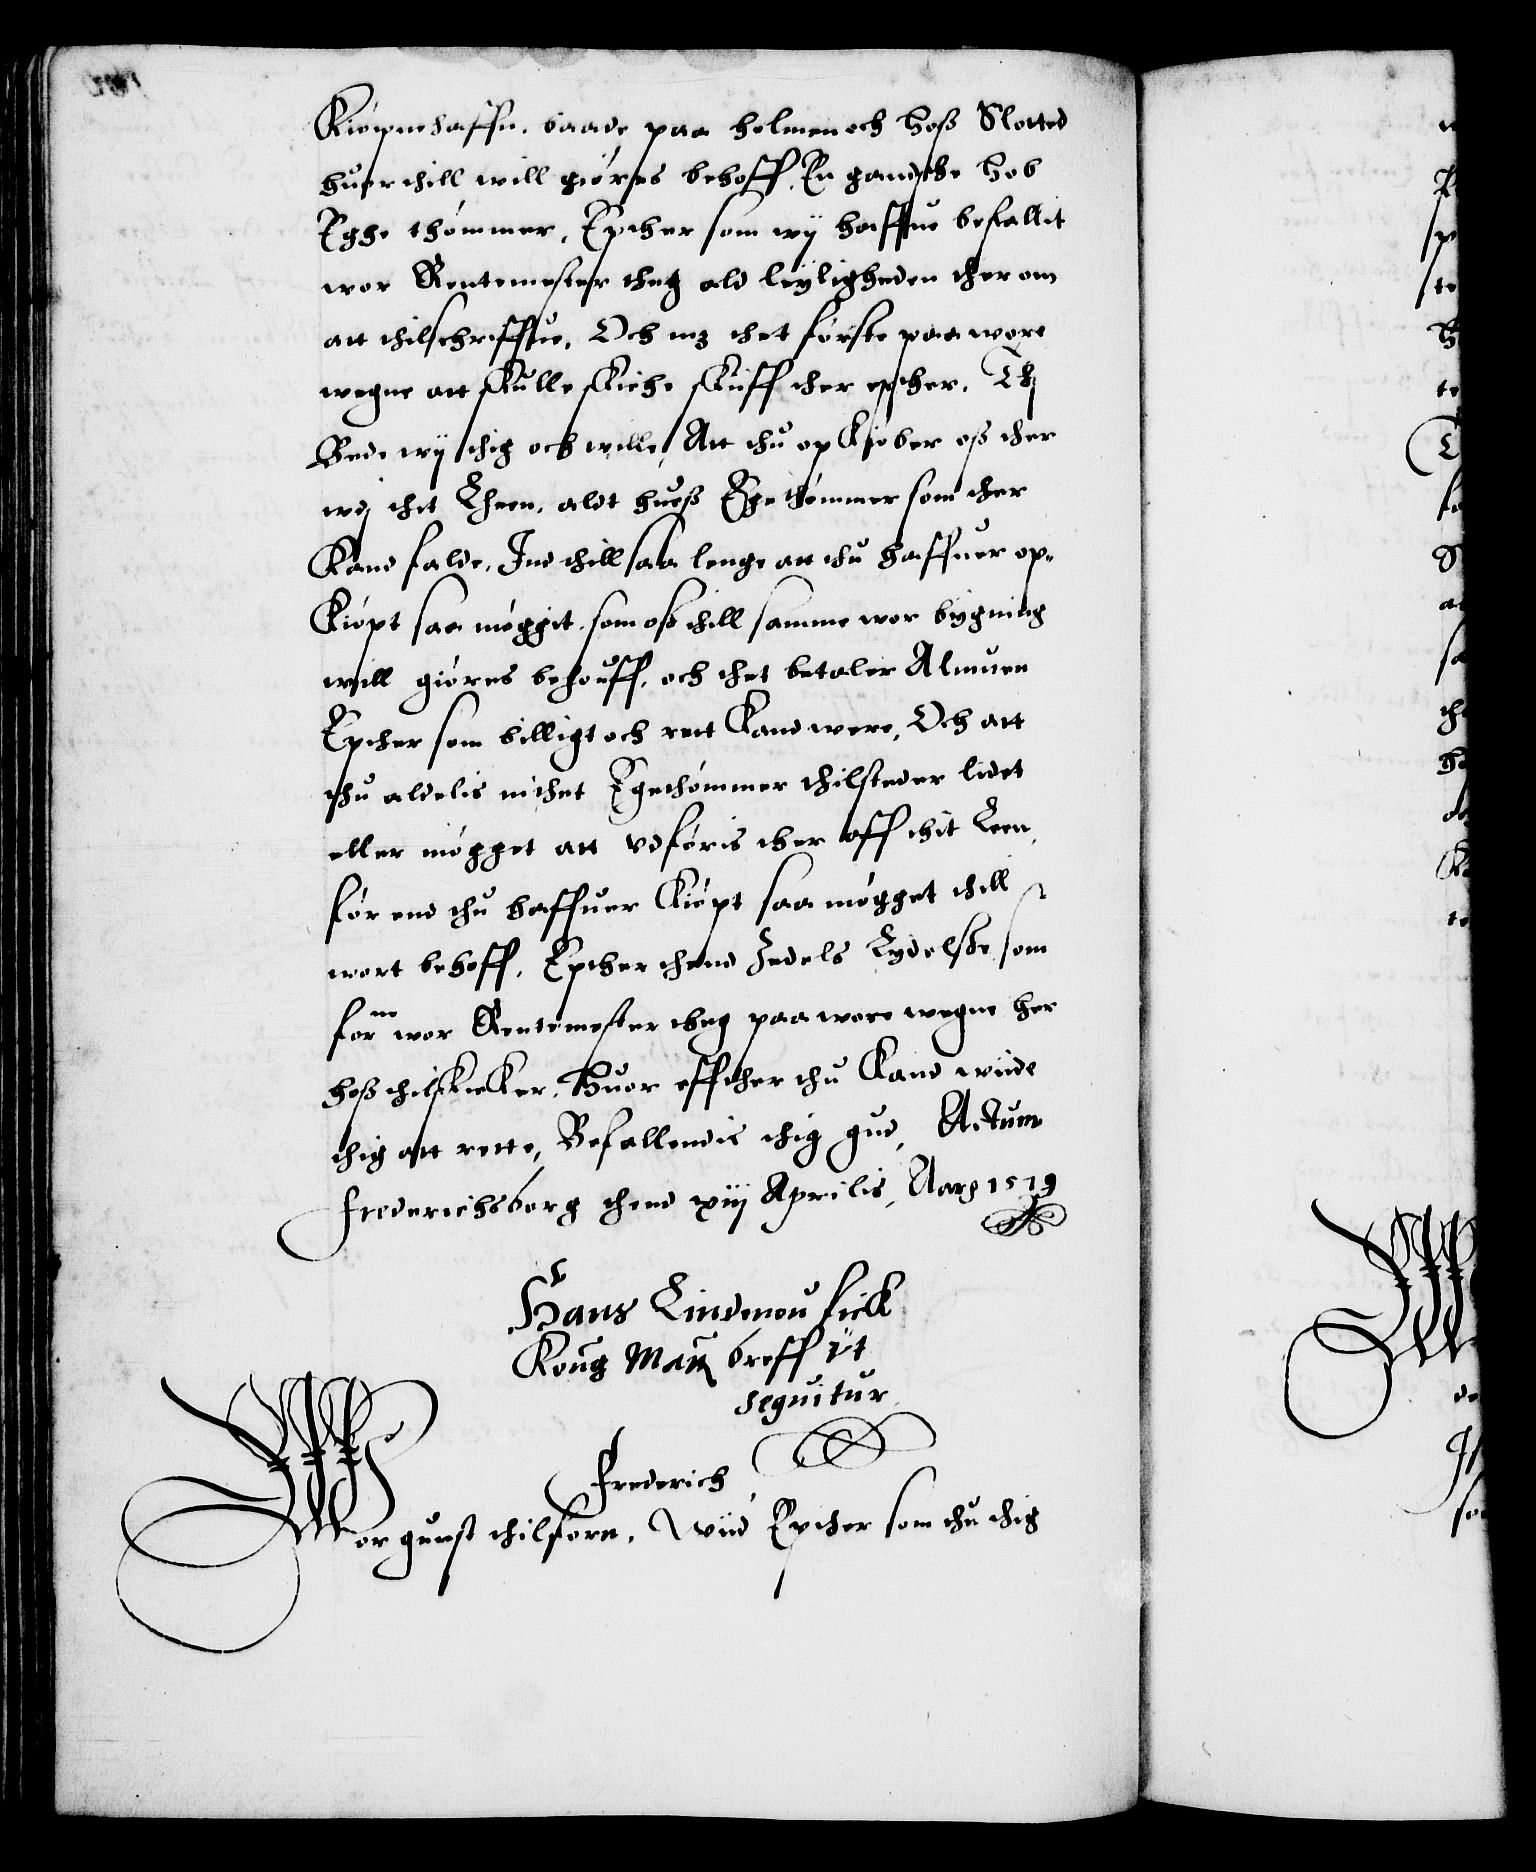 Kiøpnehaffn, baade paa holmen och hoß Slotted
huor thill will giøres behoff, En gandske hob
Eghe thømmer, Epther som wij haffue befallit
wor Rentemester theg ald leyligheden ther om
att thilschriffue, Och mz thet første paa wore
wegne att skulle skicke skuff ther epther. Thj
Bede wij thig och wille, Att thu op kiøber oß ther
wdj thit Lheen, aldt hueß Egethømmer som ther
kand falde, Ind thill saa lenge att thu haffuer op-
kiøpt saa møggit, som oß thill samme wor bygning
will giøres behouff, och thet betaler Almuen
Epther som billigt och rett kand were, Och att
thu aldelis inthet Egethømmer thilsteder lidet
eller møgget att vdføris ther aff thit Leen,
før end thu haffuer kiøpt saa møgget thill
wort behoff, Epther thend Zedels Lydelße som
forne wor Rentemester theg paa wore wegne her
hoß thilskicker, Huor effther thu kand wiide
thig att rette, Befallendis thig gud, Actum
Frederichsborg thend xiij Aprilis, Aarg 1579
Hans Lindenou fick
Kong Matz breff vt
sequitur
Frederich
Wor gunst thilforn, Wiid Epther som thu thig